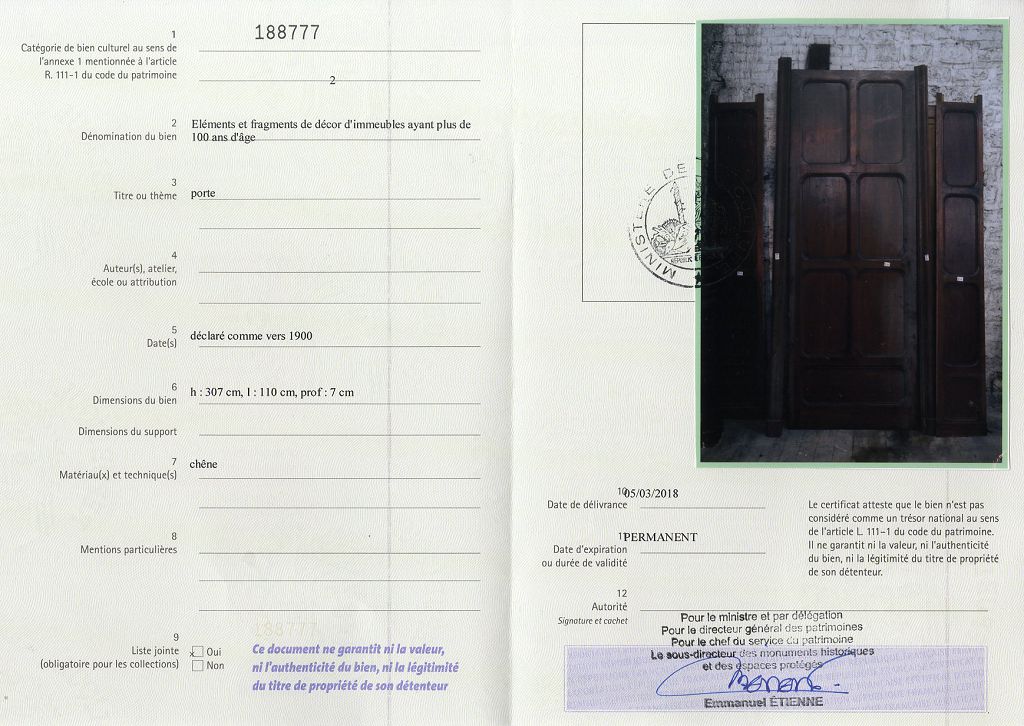 1
188777
Catégorie de bien culturel au sens de
l'annexe 1 mentionnée à l'article
R. 111-1 du code du patrimoine
2
2
Dénomination du bien
Eléments et fragments de décor d'immeubles ayant plus de
100 ans d'âge
3
Titre ou thème
porte
4
Auteur(s), atelier,
école ou attribution
5
Date(s)
déclaré comme vers 1900
6
Dimensions du bien
h : 307 cm, l : 110 cm, prof : 7 cm
Dimensions du support
7
Matériau(x) et technique(s)
chêne
8
Mentions particulières
9
Liste jointe
(obligatoire pour les collections)
x
Oui
Non
188777
Ce document ne garantit ni la valeur,
ni l'authenticité du bien, ni la légitimité
du titre de propriété de son détenteur
MINISTÈRE DE
10
Date de délivrance
05/03/2018
11
Date d'expiration
ou durée de validité
PERMANENT
12
Autorité
Signature et cachet
Le certificat atteste que le bien n'est pas
considéré comme un trésor national au sens
de l'article L. 111-1 du code du patrimoine.
Il ne garantit ni la valeur, ni l'authenticité
du bien, ni la légitimité du titre de propriété
de son détenteur.
Pour le ministre et par délégation
Pour le directeur général des patrimoines
Pour le chef du service du patrimoine
Le sous-directeur des monuments historiques
et des espaces protégés
Emmanuel ÉTIENNE